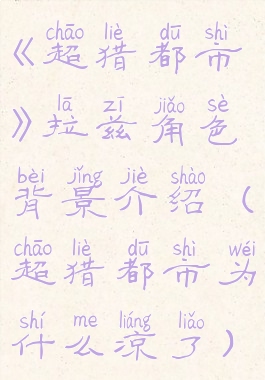 chāo liè dū shì
《超猎都市
lā zī jiǎo sè
》拉兹角色
bèi jǐng jiè shào
背景介绍（
chāo liè dū shì wéi
超猎都市为
shí me liáng liǎo
什么凉了）